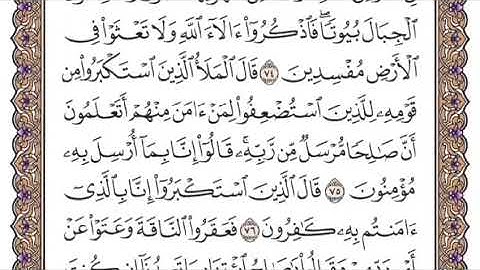 ٱلۡجِبَالَ بُيُوتٗاۖ فَٱذۡكُرُوٓاْ ءَالَآءَ ٱللَّهِ وَلَا تَعۡثَوۡاْ فِي
ٱلۡأَرۡضِ مُفۡسِدِينَ ٧٤ قَالَ ٱلۡمَلَأُ ٱلَّذِينَ ٱسۡتَكۡبَرُواْ مِن
قَوۡمِهِۦ لِلَّذِينَ ٱسۡتُضۡعِفُواْ لِمَنۡ ءَامَنَ مِنۡهُمۡ أَتَعۡلَمُونَ
أَنَّ صَٰلِحٗا مُّرۡسَلٞ مِّن رَّبِّهِۦۚ قَالُوٓاْ إِنَّا بِمَآ أُرۡسِلَ بِهِۦ
مُؤۡمِنُونَ ٧٥ قَالَ ٱلَّذِينَ ٱسۡتَكۡبَرُوٓاْ إِنَّا بِٱلَّذِيٓ
ءَامَنتُم بِهِۦ كَٰفِرُونَ ٧٦ فَعَقَرُواْ ٱلنَّاقَةَ وَعَتَوۡاْ عَنۡ